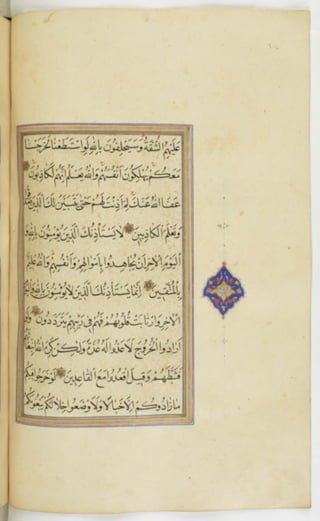 عَلَيْهِمُ الشُّقَّةُ وَسَيَحْلِفُونَ بِاللَّهِ لَوِ اسْتَطَعْنَا لَخَرَجْنَا
مَعَكُمْ يُهْلِكُونَ أَنْفُسَهُمْ وَاللَّهُ يَعْلَمُ إِنَّهُمْ لَكَاذِبُونَ
عَفَا اللَّهُ عَنْكَ لِمَ أَذِنْتَ لَهُمْ حَتَّى يَتَبَيَّنَ لَكَ الَّذِينَ صَدَقُوا
وَتَعْلَمَ الْكَاذِبِينَ لَا يَسْتَأْذِنُكَ الَّذِينَ يُؤْمِنُونَ بِاللَّهِ وَ
الْيَوْمِ الْآخِرِ أَنْ يُجَاهِدُوا بِأَمْوَالِهِمْ وَأَنْفُسِهِمْ وَاللَّهُ عَلِيمٌ
بِالْمُتَّقِينَ إِنَّمَا يَسْتَأْذِنُكَ الَّذِينَ لَا يُؤْمِنُونَ بِاللَّهِ وَالْيَوْمِ
الْآخِرِ وَارْتَابَتْ قُلُوبُهُمْ فَهُمْ فِي رَيْبِهِمْ يَتَرَدَّدُونَ وَلَوْ
أَرَادُوا الْخُرُوجَ لَأَعَدُّوا لَهُ عُدَّةً وَلَكِنْ كَرِهَ اللَّهُ انْبِعَاثَهُمْ
فَثَبَّطَهُمْ وَقِيلَ اقْعُدُوا مَعَ الْقَاعِدِينَ لَوْ خَرَجُوا فِيكُمْ
مَا زَادُوكُمْ إِلَّا خَبَالًا وَلَأَوْضَعُوا خِلَالَكُمْ يَبْغُونَكُمُ